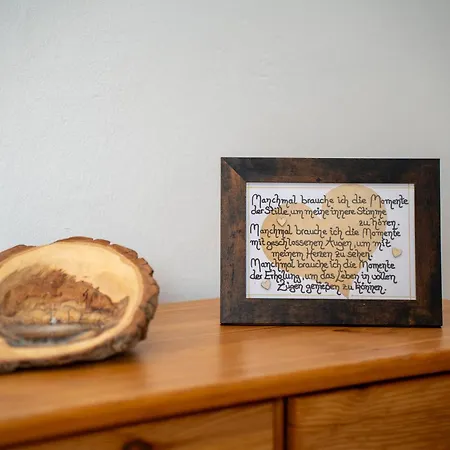 Manchmal brauche ich die Momente
der Stille, um meine innere Stimme
zu hören.
Manchmal brauche ich die Momente
mit geschlossenen Augen, um mit
meinem Herzen zu sehen.
Manchmal brauche ich die Momente
der Erholung, um das Leben in vollen
Zügen genießen zu können.